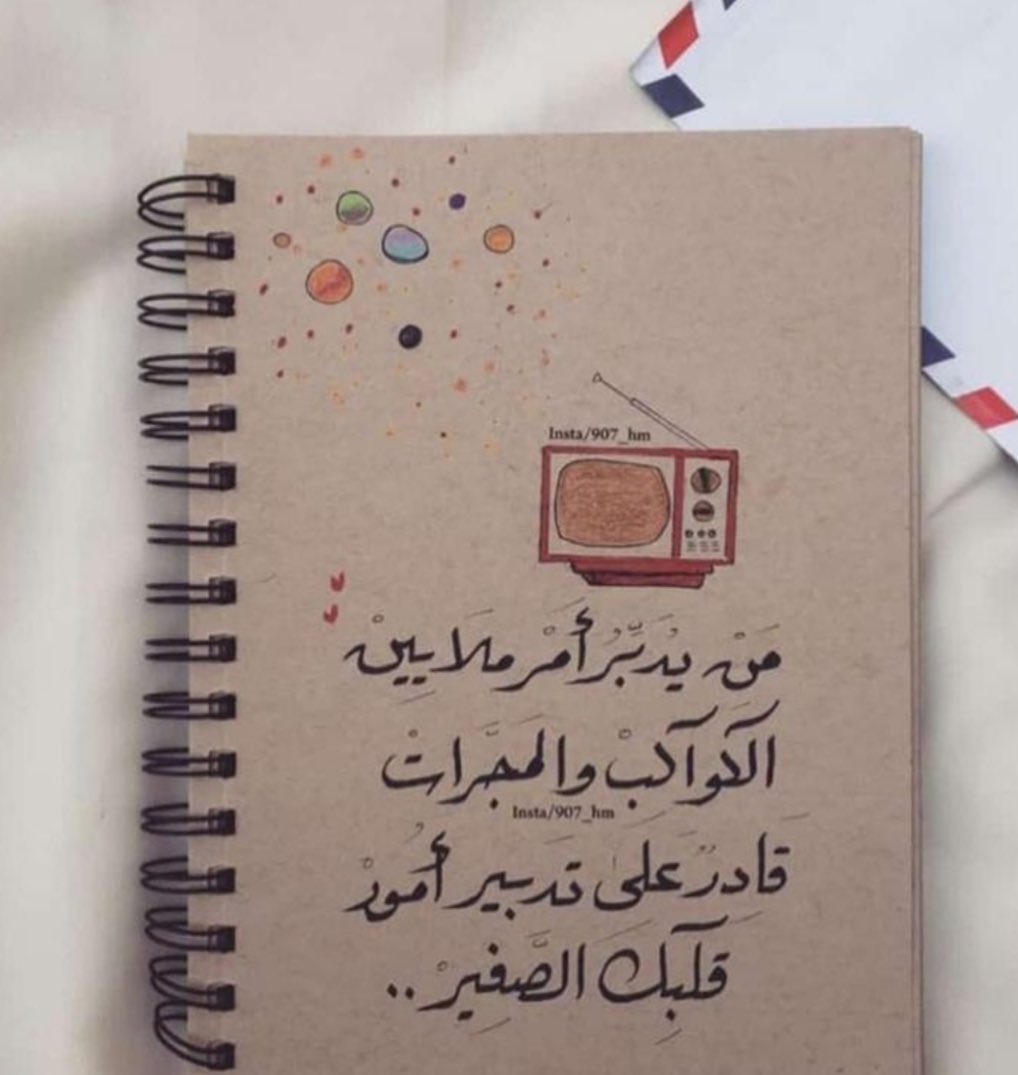 Insta/907_hm
مَنْ يُدبِّرُ أَمْرَ ملايينْ
الكواكبْ والمجرَّاتْ
Insta/907_hm
قادرٌ على تدبير أُمورْ
قلبك الصَّغيرْ..